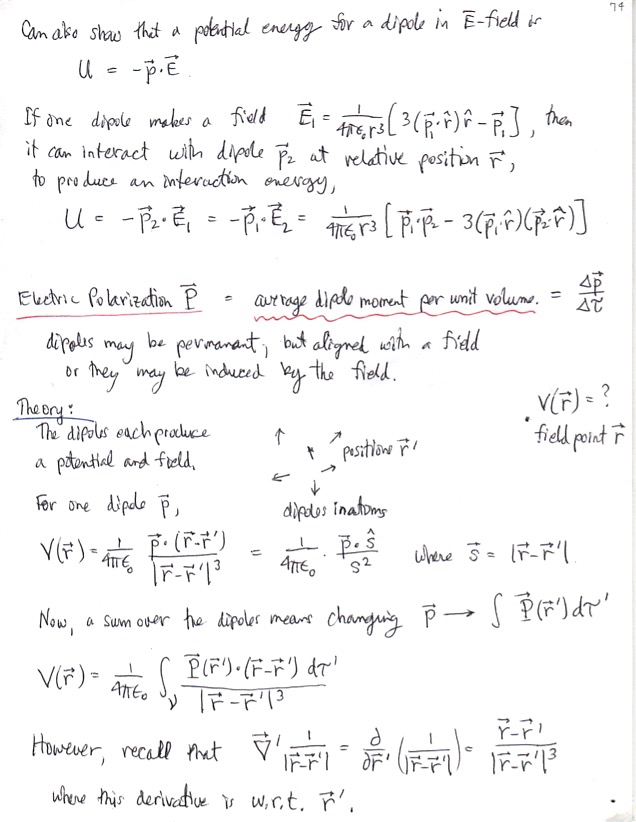 74
Can also show that a potential energy for a dipole in E⃗-field is
U = -p⃗·E⃗
If one dipole makes a field E⃗₁ = 1/(4πε₀r³) [3(p⃗₁·r̂)r̂ - p⃗₁], then
it can interact with dipole p⃗₂ at relative position r⃗,
to produce an interaction energy,
U = -p⃗₂·E⃗₁ = -p⃗₁·E⃗₂ = 1/(4πε₀r³) [p⃗₁·p⃗₂ - 3(p⃗₁·r̂)(p⃗₂·r̂)]
Electric Polarization P⃗ = average dipole moment per unit volume. = Δp⃗/Δτ
dipoles may be permanant, but aligned with a field
or they may be induced by the field.
Theory:
The dipoles each produce
a potential and field.
positions r⃗'
dipoles in atoms
V(r⃗) = ?
field point r⃗
For one dipole p⃗,
V(r⃗) = 1/(4πε₀) p⃗·(r⃗-r⃗')/|r⃗-r⃗'|³ = 1/(4πε₀) · p⃗·ŝ/s² where s⃗ = |r⃗-r⃗'|.
Now, a sum over the dipoles means changing p⃗ → ∫ P⃗(r⃗')dτ'
V(r⃗) = 1/(4πε₀) ∫_V P⃗(r⃗')·(r⃗-r⃗') dτ'/|r⃗-r⃗'|³
However, recall that ∇⃗' 1/|r⃗-r⃗'| = ∂/∂r⃗' (1/|r⃗-r⃗'|) = (r⃗-r⃗')/|r⃗-r⃗'|³
where this derivative is w.r.t. r⃗'.